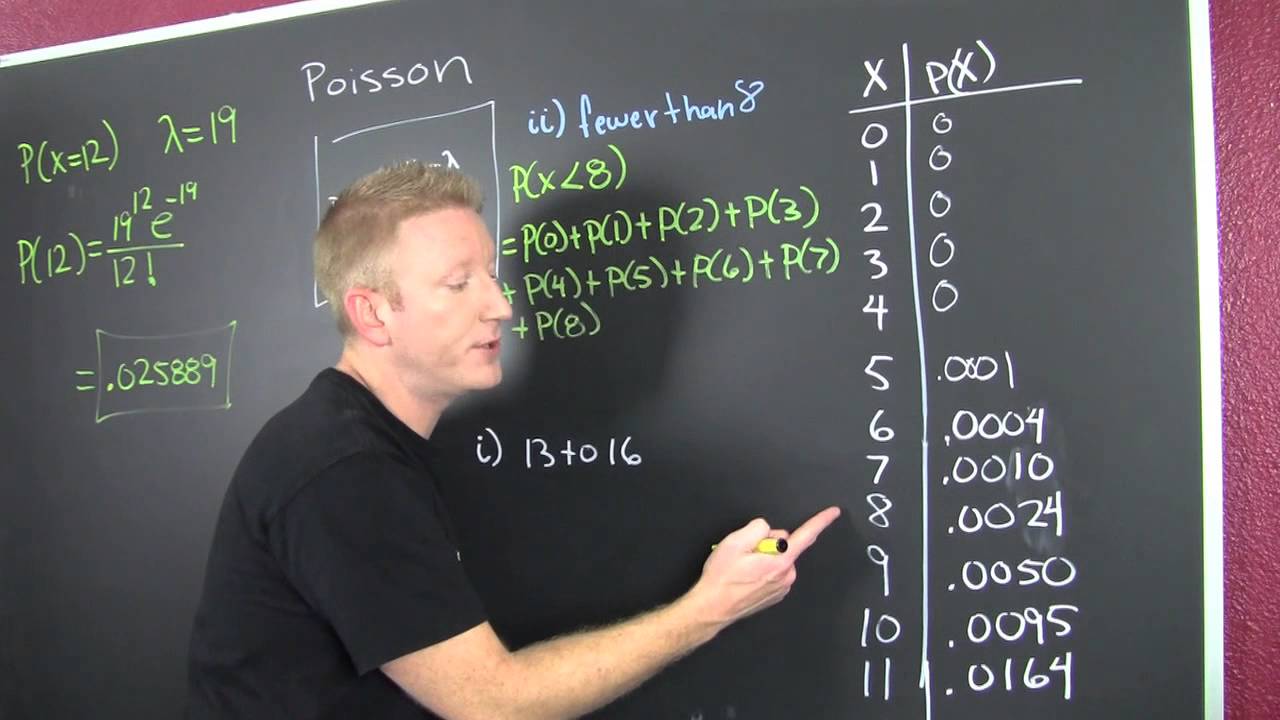 Poisson
P(x=12) λ=19
P(12)=19^12 e^-19
12!
=.025889
ii) fewer than 8
P(x<8)
=P(0)+P(1)+P(2)+P(3)
+P(4)+P(5)+P(6)+P(7)
+P(8)
i) 13 to 16
X P(X)
0 0
1 0
2 0
3 0
4 0
5 .0001
6 .0004
7 .0010
8 .0024
9 .0050
10 .0095
11 .0164